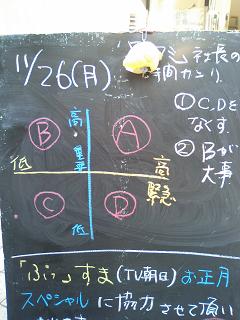 11/26(月)
社長の
①C,Dを
なくす.
②Bが
大事
高
B
A
重要
低
高
緊急
C
D
低
「ぷっ」すま(TV朝日)お正月
スペシャルに協力させて頂い